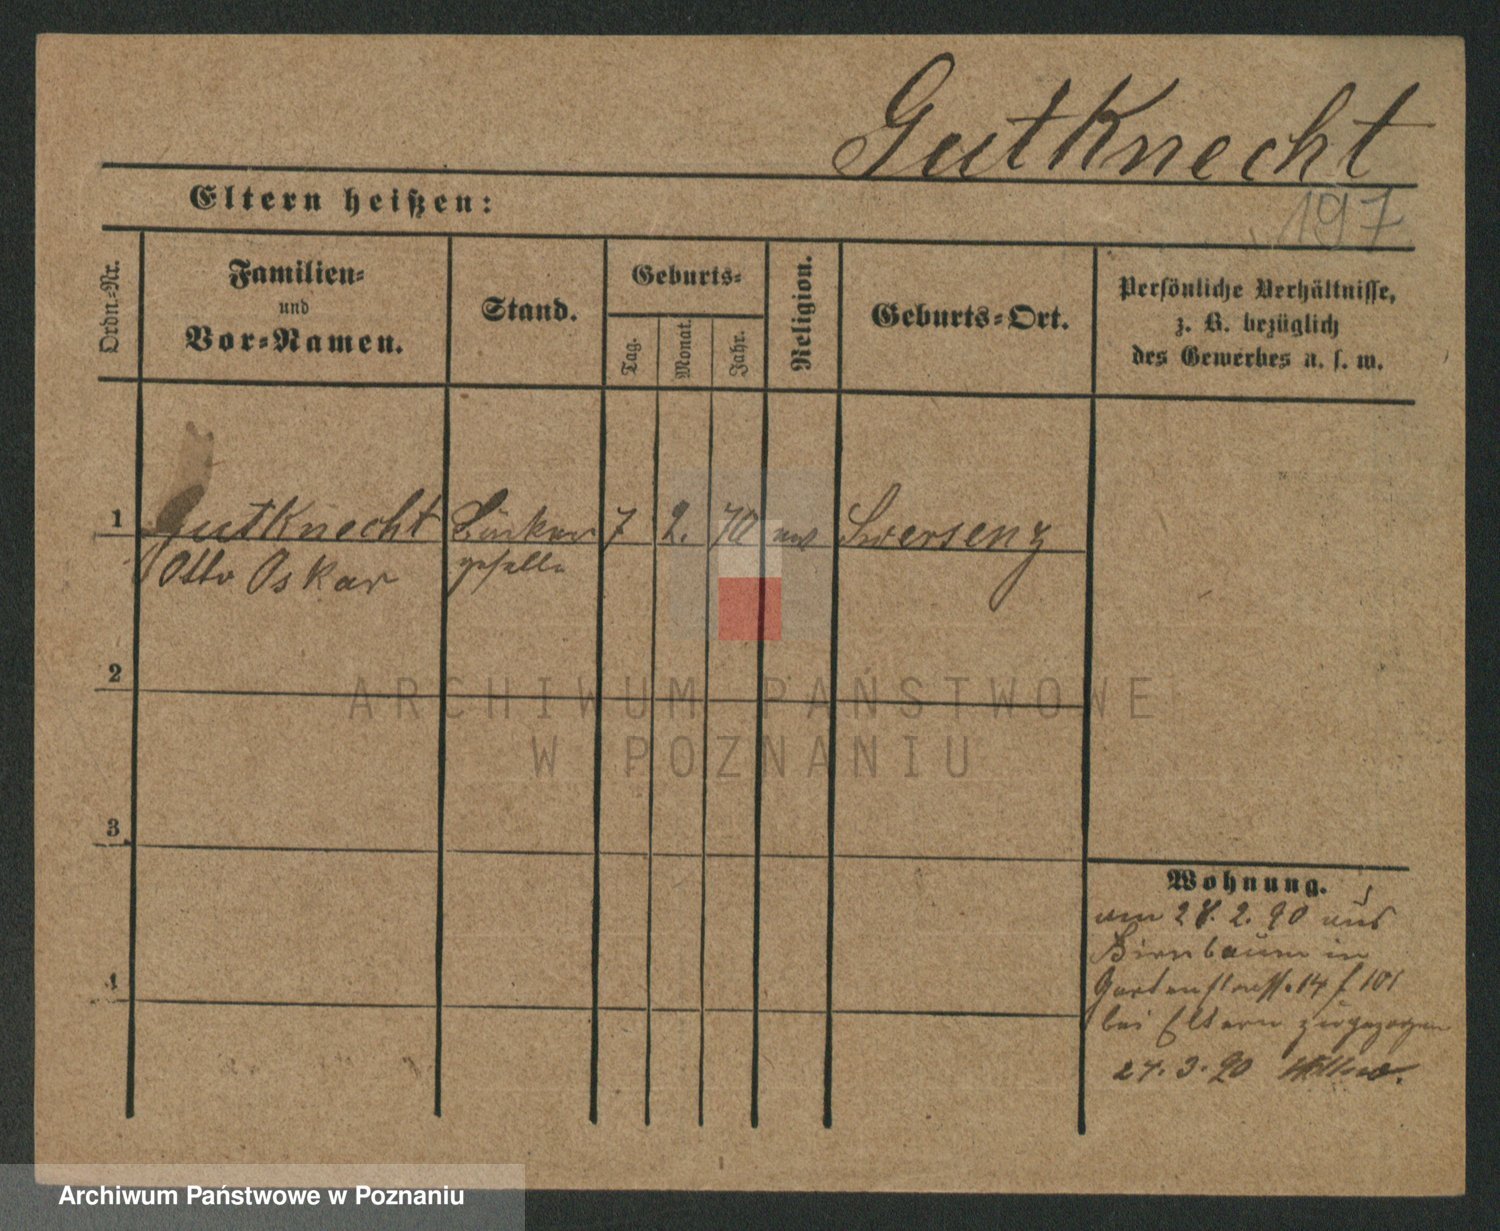 Gutknecht
Eltern heißen:
197
Ordn.=Nr.
Familien=
und
Vor=Namen.
Stand.
Geburts=
Tag.
Monat.
Jahr.
Religion.
Geburts=Ort.
Persönliche Verhältnisse,
z. B. bezüglich
des Gewerbes u. s. w.
1 Gutknecht Bäcker 7 2. 70 Swersenz
Otto Oskar geselle
2
ARCHIWUM PAŃSTWOWE
W POZNANIU
3
4
Wohnung.
am 28. 2. 90 aus
Birnbaum in
Gartenstrasse 14 f 101
bei Eltern zugezogen
24. 3. 90
Archiwum Państwowe w Poznaniu